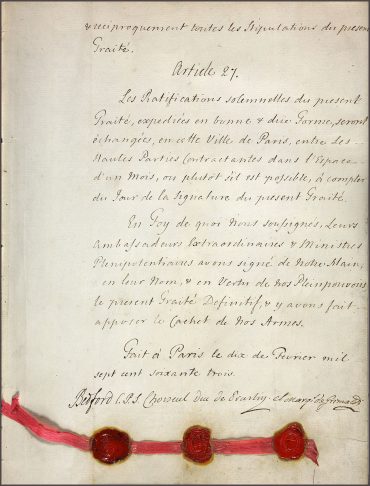 & réciproquement toutes les Stipulations du present
Traité.
Article 27.
Les Ratifications solemnelles du present
Traité, expediées en bonne & due Forme, seront
échangées, en cette Ville de Paris, entre Les
Hautes Parties Contractantes dans l'Espace
d'un Mois, ou plutôt s'il est possible, à compter
du Jour de la Signature du present Traité.
En Foy de quoi Nous soussignés, Leurs
Ambassadeurs Extraordinaires & Ministres
Plenipotentiaires avons signé de Notre Main,
en leur Nom, & en Vertu de nos Pleinpouvoirs
le present Traité Definitif, & y avons fait
apposer le Cachet de Nos Armes.
Fait à Paris le dix de Fevrier mil
sept cent soixante trois.
Bedford C.P.S. Choiseul Duc de Praslin el Marqs. de Grimaldi